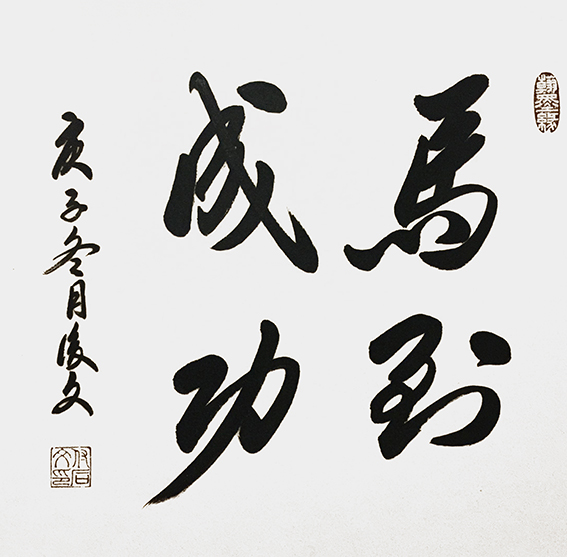 馬到
成功
庚子冬月文